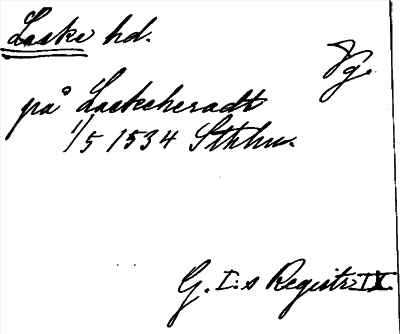 Laske hd.
Vg.
på Laskeheradt
1/5 1534 Sthlm.
G. I:s Registr. IX.